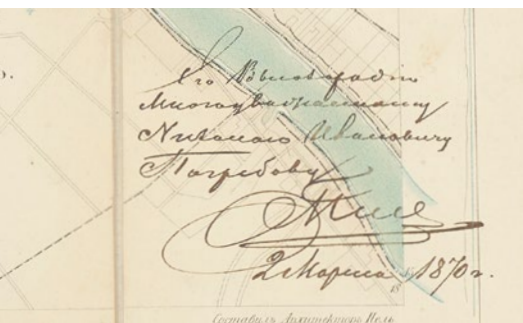 ъ.
Его Высокородію
Многоуважаемому
Николаю Ивановичу
Погребову
2 Марта 1870 г.
Составилъ Архитекторъ